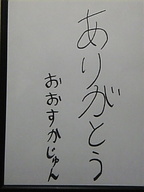 ありがとう
おおすかじゅん